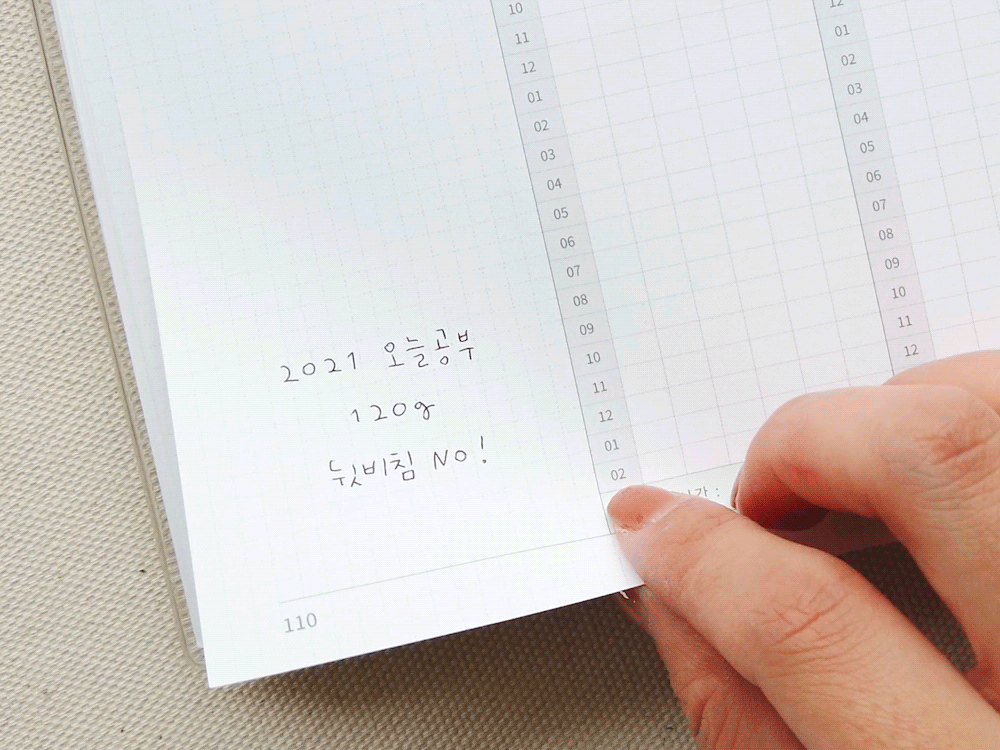 10
11
12
01
02
03
04
05
06
07
08
09
10
11
12
01
02
12
01
02
03
04
05
06
07
08
09
10
11
12
2021 오늘공부
120g
뒷비침 No!
110